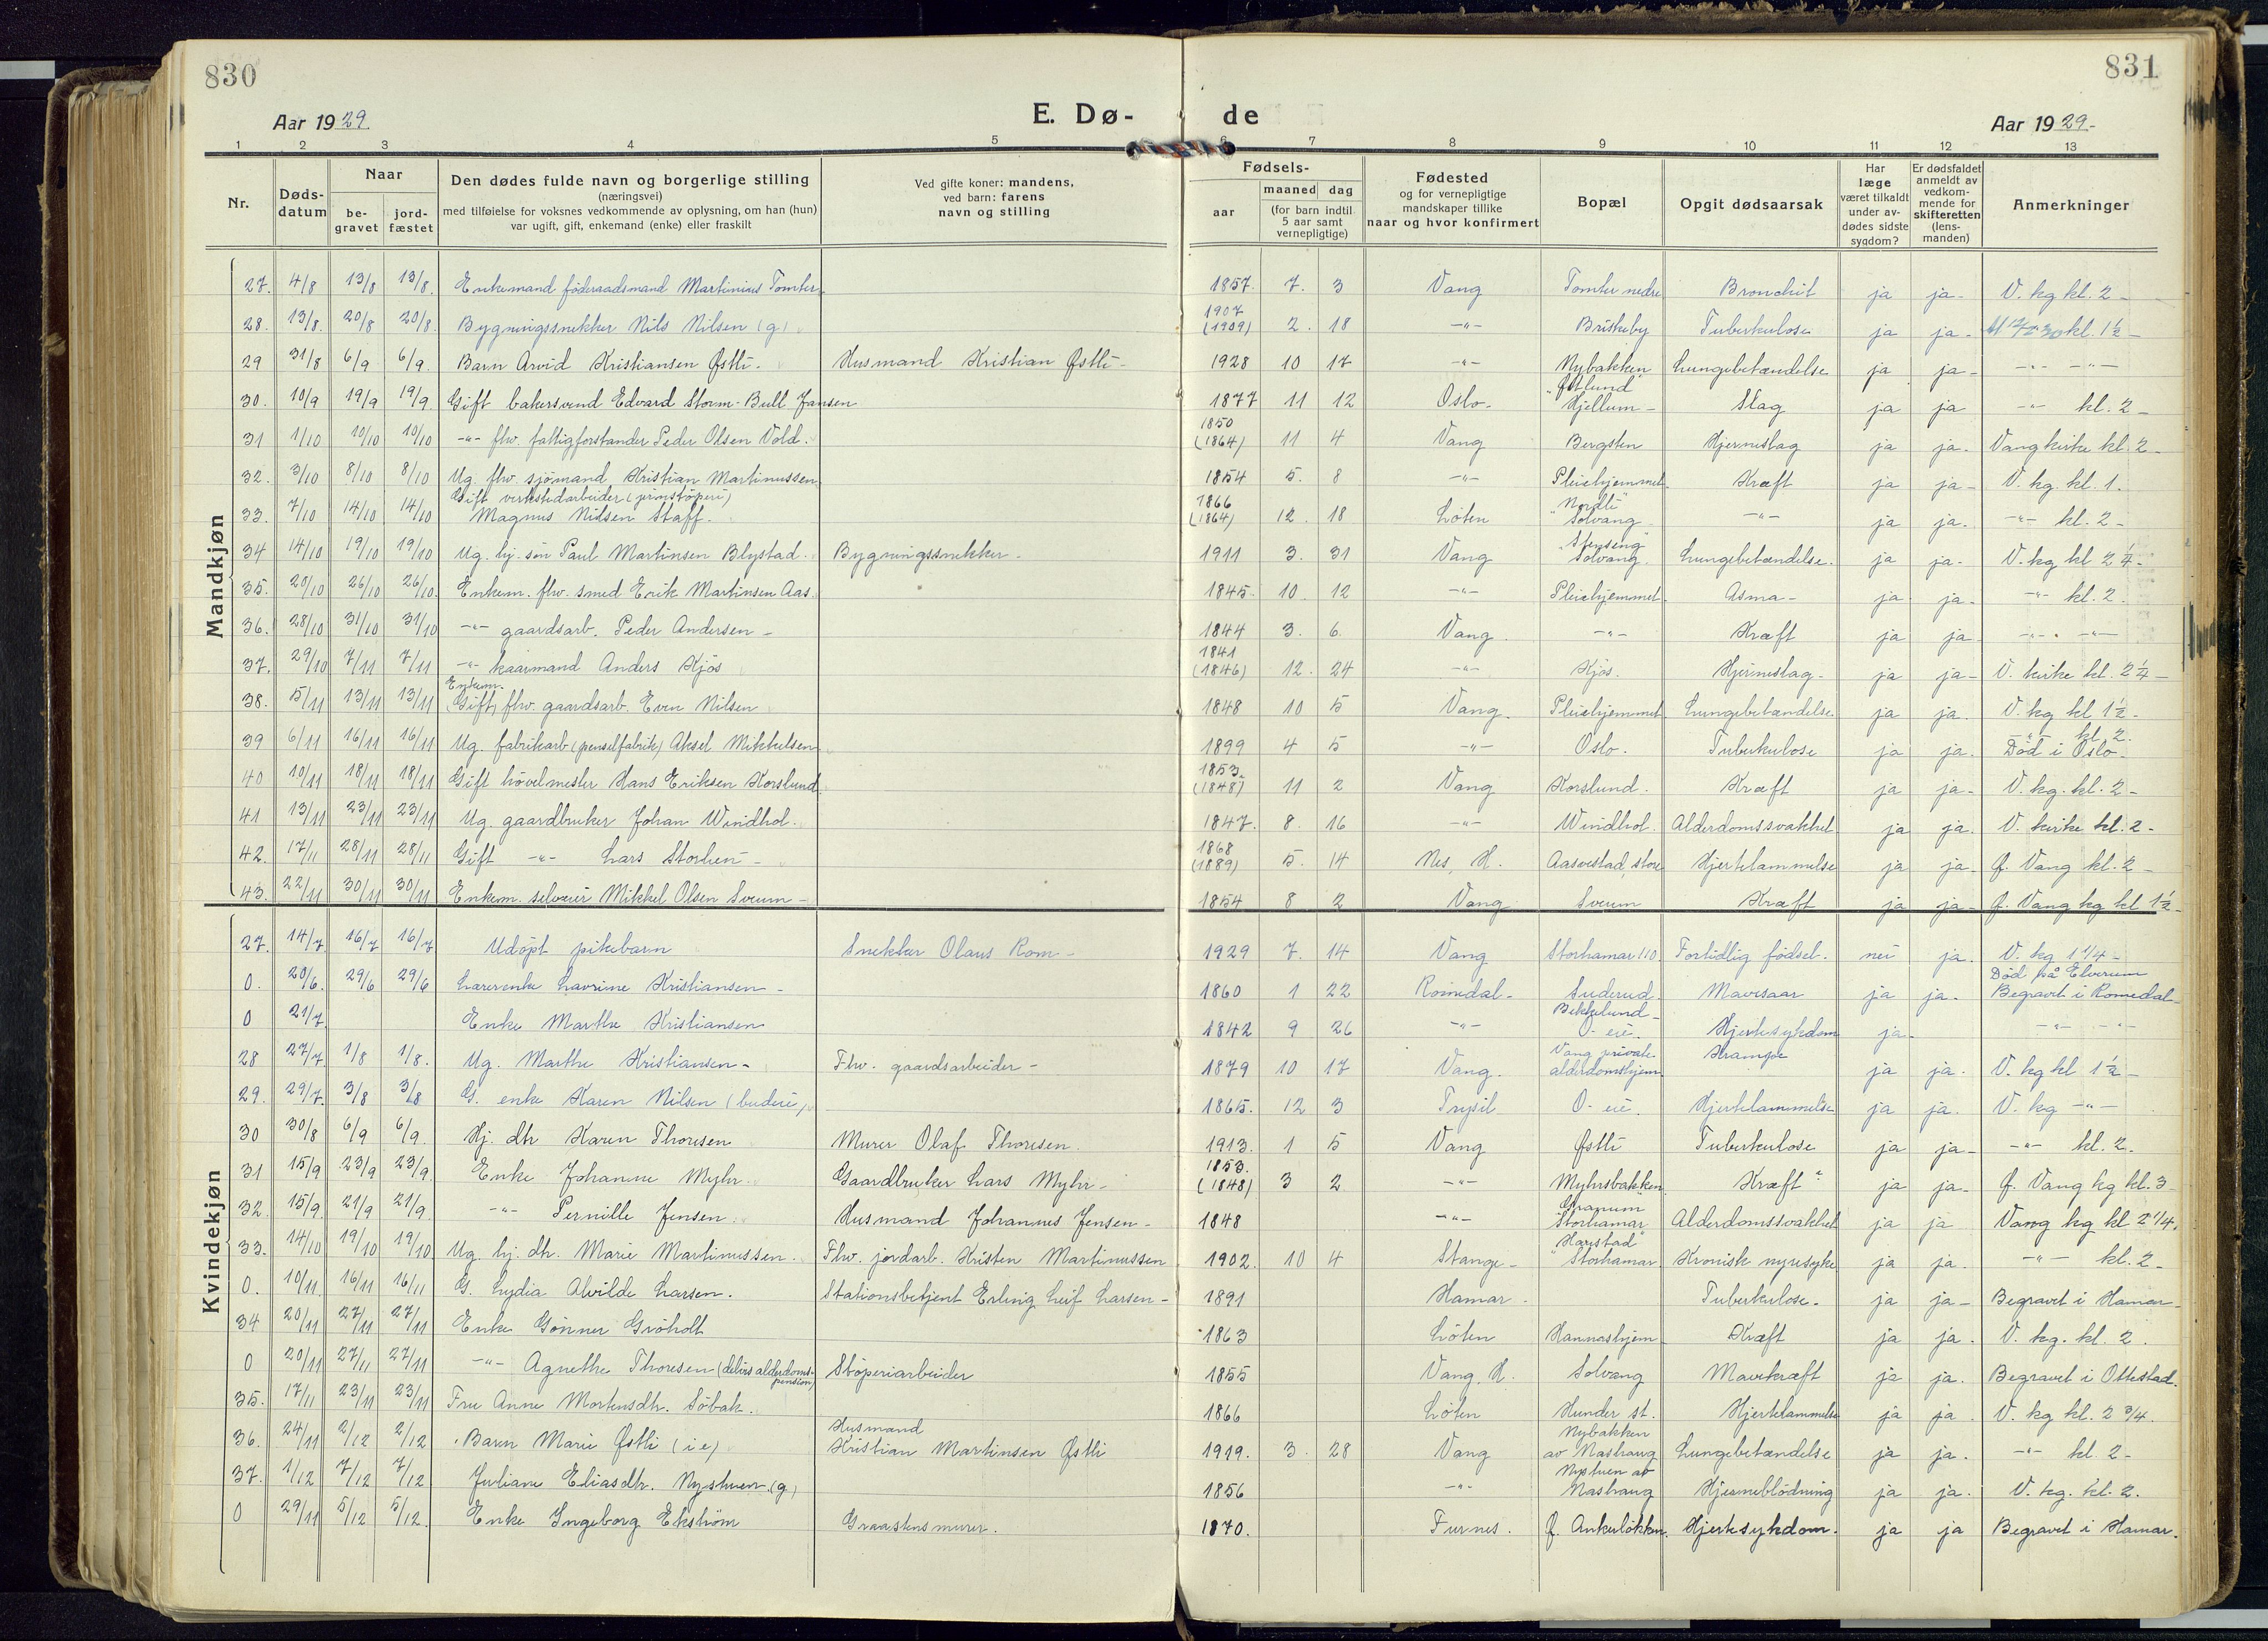 830
831
Aar 1929.
E. Dø-
de
Aar 1929.
1 2 3 4 5 6 7 8 9 10 11 12 13
Nr.
Døds-
datum
Naar
be-
gravet
jord-
fæstet
Den dødes fulde navn og borgerlige stilling
(næringsvei)
med tilføielse for voksnes vedkommende av oplysning, om han (hun)
var ugift, gift, enkemand (enke) eller fraskilt
Ved gifte koner: mandens,
ved barn: farens
navn og stilling
Fødsels-
aar
maaned dag
(for barn indtil
5 aar samt
vernepligtige)
Fødested
og for vernepligtige
mandskaper tillike
naar og hvor konfirmert
Bopæl
Opgit dødsaarsak
Har
læge
været tilkaldt
under av-
dødes sidste
sygdom?
Er dødsfaldet
anmeldt av
vedkom-
mende for
skifteretten
(lens-
manden)
Anmerkninger
Mandkjøn
27. 4/8 13/8 13/8. Enkemand föderaadsmand Martinius Tomter. 1857. 7. 3 Vang Tomter nedre Bronchit ja ja- V. kg kl. 2-
28. 13/8. 20/8 20/8. Bygningssnekker Nils Nilsen (g.) 1907 (1909) 2. 18 -"- Briskeby Tuberkulose ja ja- kl. 1½-
29 31/8 6/9 6/9. Barn Arvid Kristiansen Østli. Husmand Kristian Østli- 1928 10 17 -"- Nybakken Lungebetændelse ja ja- -"- -"-
30. 10/9 19/9 19/9. Gift bakersvend Edvard Storm-Bull Jansen 1877 11 12 Oslo. "Østlund" Hjellum- Slag ja ja -"- kl. 2-
31 1/10 10/10 10/10 -"- fhv. fattigforstander Peder Olsen Vold. 1850 (1864) 11 4 Vang Bergsten Hjerneslag ja ja. Vang kirke kl. 2-
32. 3/10 8/10 8/10 Ug. fhv. sjömand Kristian Martinussen 1854 5. 8 -"- Pleiehjemmet. Kræft ja ja- V. kg. kl. 1.
33. 7/10 14/10 14/10 Gift verkstedarbeider (jernstöperi) Magnus Nilsen Staff. 1866 (1864) 12. 18 Löten "Nordli" Solvang- -"- ja ja. -"- kl. 2-
34 14/10 19/10 19/10 Ug. hj. sön Paul Martinsen Blystad. Bygningssnekker. 1911 3. 31 Vang "Stenseng" Solvang. Lungebetændelse. ja ja. V. kg kl 2¼-
35. 20/10 26/10 26/10. Enkem. fhv. smed Erik Martinsen Aas. 1845. 10. 12 -"- Pleiehjemmet. Asma- ja ja- -"- kl. 2.
36. 28/10 31/10 31/10 -"- gaardsarb. Peder Andersen- 1844 3. 6. Vang. -"- Kræft ja ja -"- -"-
37. 29/10 7/11 7/11 -"- kaarmand Anders Kjös 1841 (1846) 12. 24 -"- Kjös. Hjerneslag- ja ja- V. kirke kl. 2¼-
38. 5/11 13/11 13/11 Enkem. (Gift) fhv. gaardsarb. Even Nilsen 1848 10 5 Vang. Pleiehjemmet Lungebetændelse. ja ja. V. kg kl 1½-
39 6/11 16/11 16/11 Ug. fabrikarb (penselfabrik) Aksel Mikkelsen 1899 4 5 -"- Oslo. Tuberkulose ja ja. -"- kl 2. Död i Oslo-
40 10/11 18/11 18/11 Gift hövelmester Hans Eriksen Korslund 1853. (1848) 11 2 Vang Korslund. Kræft ja ja- V. kg. kl. 2-
41 13/11 23/11 23/11 Ug. gaardbruker Johan Windhol. 1847. 8. 16 -"- Windhol. Alderdomssvakhet ja ja. V. kirke kl. 2-
42. 17/11 28/11 28/11 Gift -"- Lars Storlien- 1868 (1889) 5. 14 Nes, H. Aasvestad, store Hjertelammelse ja ja. f. Vang kl. 2-
43. 22/11 30/11 30/11 Enkem. selveier Mikkel Olsen Sveum- 1854 8 2 Vang Sveum Kræft ja ja- f. Vang kg kl 1½-
Kvindekjøn
27. 14/7 16/7 16/7 Udöpt pikebarn Snekker Olaus Rom- 1929 7. 14 Vang Storhamar 110 Fortidlig födsel. nei ja. V. kg 1¼-
0. 20/6. 29/6 29/6 Lærerenke Lavrine Kristiansen- 1860 1 22 Romedal- Suderud. Mavesaar ja ja. Död på Elverum Begravet i Romedal
0 21/7. Enke Marthe Kristiansen 1842 9 26 -"- Bekkelund- O-eie. Hjertesykdom ja. -"- -"-
28 27/7. 1/8 1/8. Ug. Marthe Kristiansen- Fhv. gaardsarbeider- 1879 10 17 Vang. Vang private alderdomshjem Krampe ja ja. V. kg kl 1½-
29. 29/7. 3/8 3/8 G. enke Karen Nilsen (budeie) 1865. 12 3 Trysil O-eie. Hjertelammelse ja ja. V. kg -"-
30 30/8 6/9 6/9. Hj. dtr Karen Thoresen Murer Olaf Thoresen. 1913. 1 5 Vang Østli Tuberkulose ja ja- -"- kl. 2.
31 15/9 23/9 23/9. Enke Johanne Myhr. Gaardbruker Lars Myhr- 1853. (1848) 3 2 -"- Myhrsbakken Kræft ja ja- f. Vang kg kl. 3-
32. 15/9. 21/9 21/9. -"- Pernille Jensen. Husmand Johannes Jensen- 1848 -"- Storhamar Alderdomssvakhet ja ja Vang kg kl 2¼.
33. 14/10 19/10 19/10 Ug. hj. dtr. Marie Martinussen. Fhv. jordarb. Kristen Martinussen 1902. 10 4 Stange- "Harstad" Storhamar Kronisk nyresyke ja ja. -"- kl. 2-
0. 10/11. 16/11 16/11 G. Lydia Alvilde Larsen. Stationsbetjent Erling Leif Larsen- 1891 Hamar. Tuberkulose. ja ja- Begravet i Hamar-
34 20/11 27/11 27/11 Enke Gönner Gröholt 1863 Löten Hannashjem Kræft ja ja. V. kg. kl. 2.
0 20/11 27/11 27/11 -"- Agnethe Thoresen (delvis alderdoms-pension) Stöperiarbeider 1855 Vang, H. Solvang Mavekræft ja ja. Begravet i Ottestad.
35. 17/11 23/11 23/11 Fru Anne Mortensdtr. Söbak. 1866 Löten Hunder st. Hjertelammelse ja ja. V. kg kl. 2¾.
36. 24/11 2/12 2/12 Barn Marie Østli (i e) Husmand Kristian Martinsen Østli 1919. 3. 28 Vang Nybakken av Nashaug Lungebetændelse ja ja. -"- kl. 2-
37. 1/12 7/12 7/12 Juliane Eliasdtr. Nystuen (g) 1856 -"- Nystuen av Nashaug Hjerneblödning ja ja. V. kg. kl. 2.
0 29/11 5/12 5/12. Enke Ingeborg Ekström Graastensmurer. 1870. Furnes. f. Ankerlökken. Hjertesykdom. ja ja Begravet i Hamar.